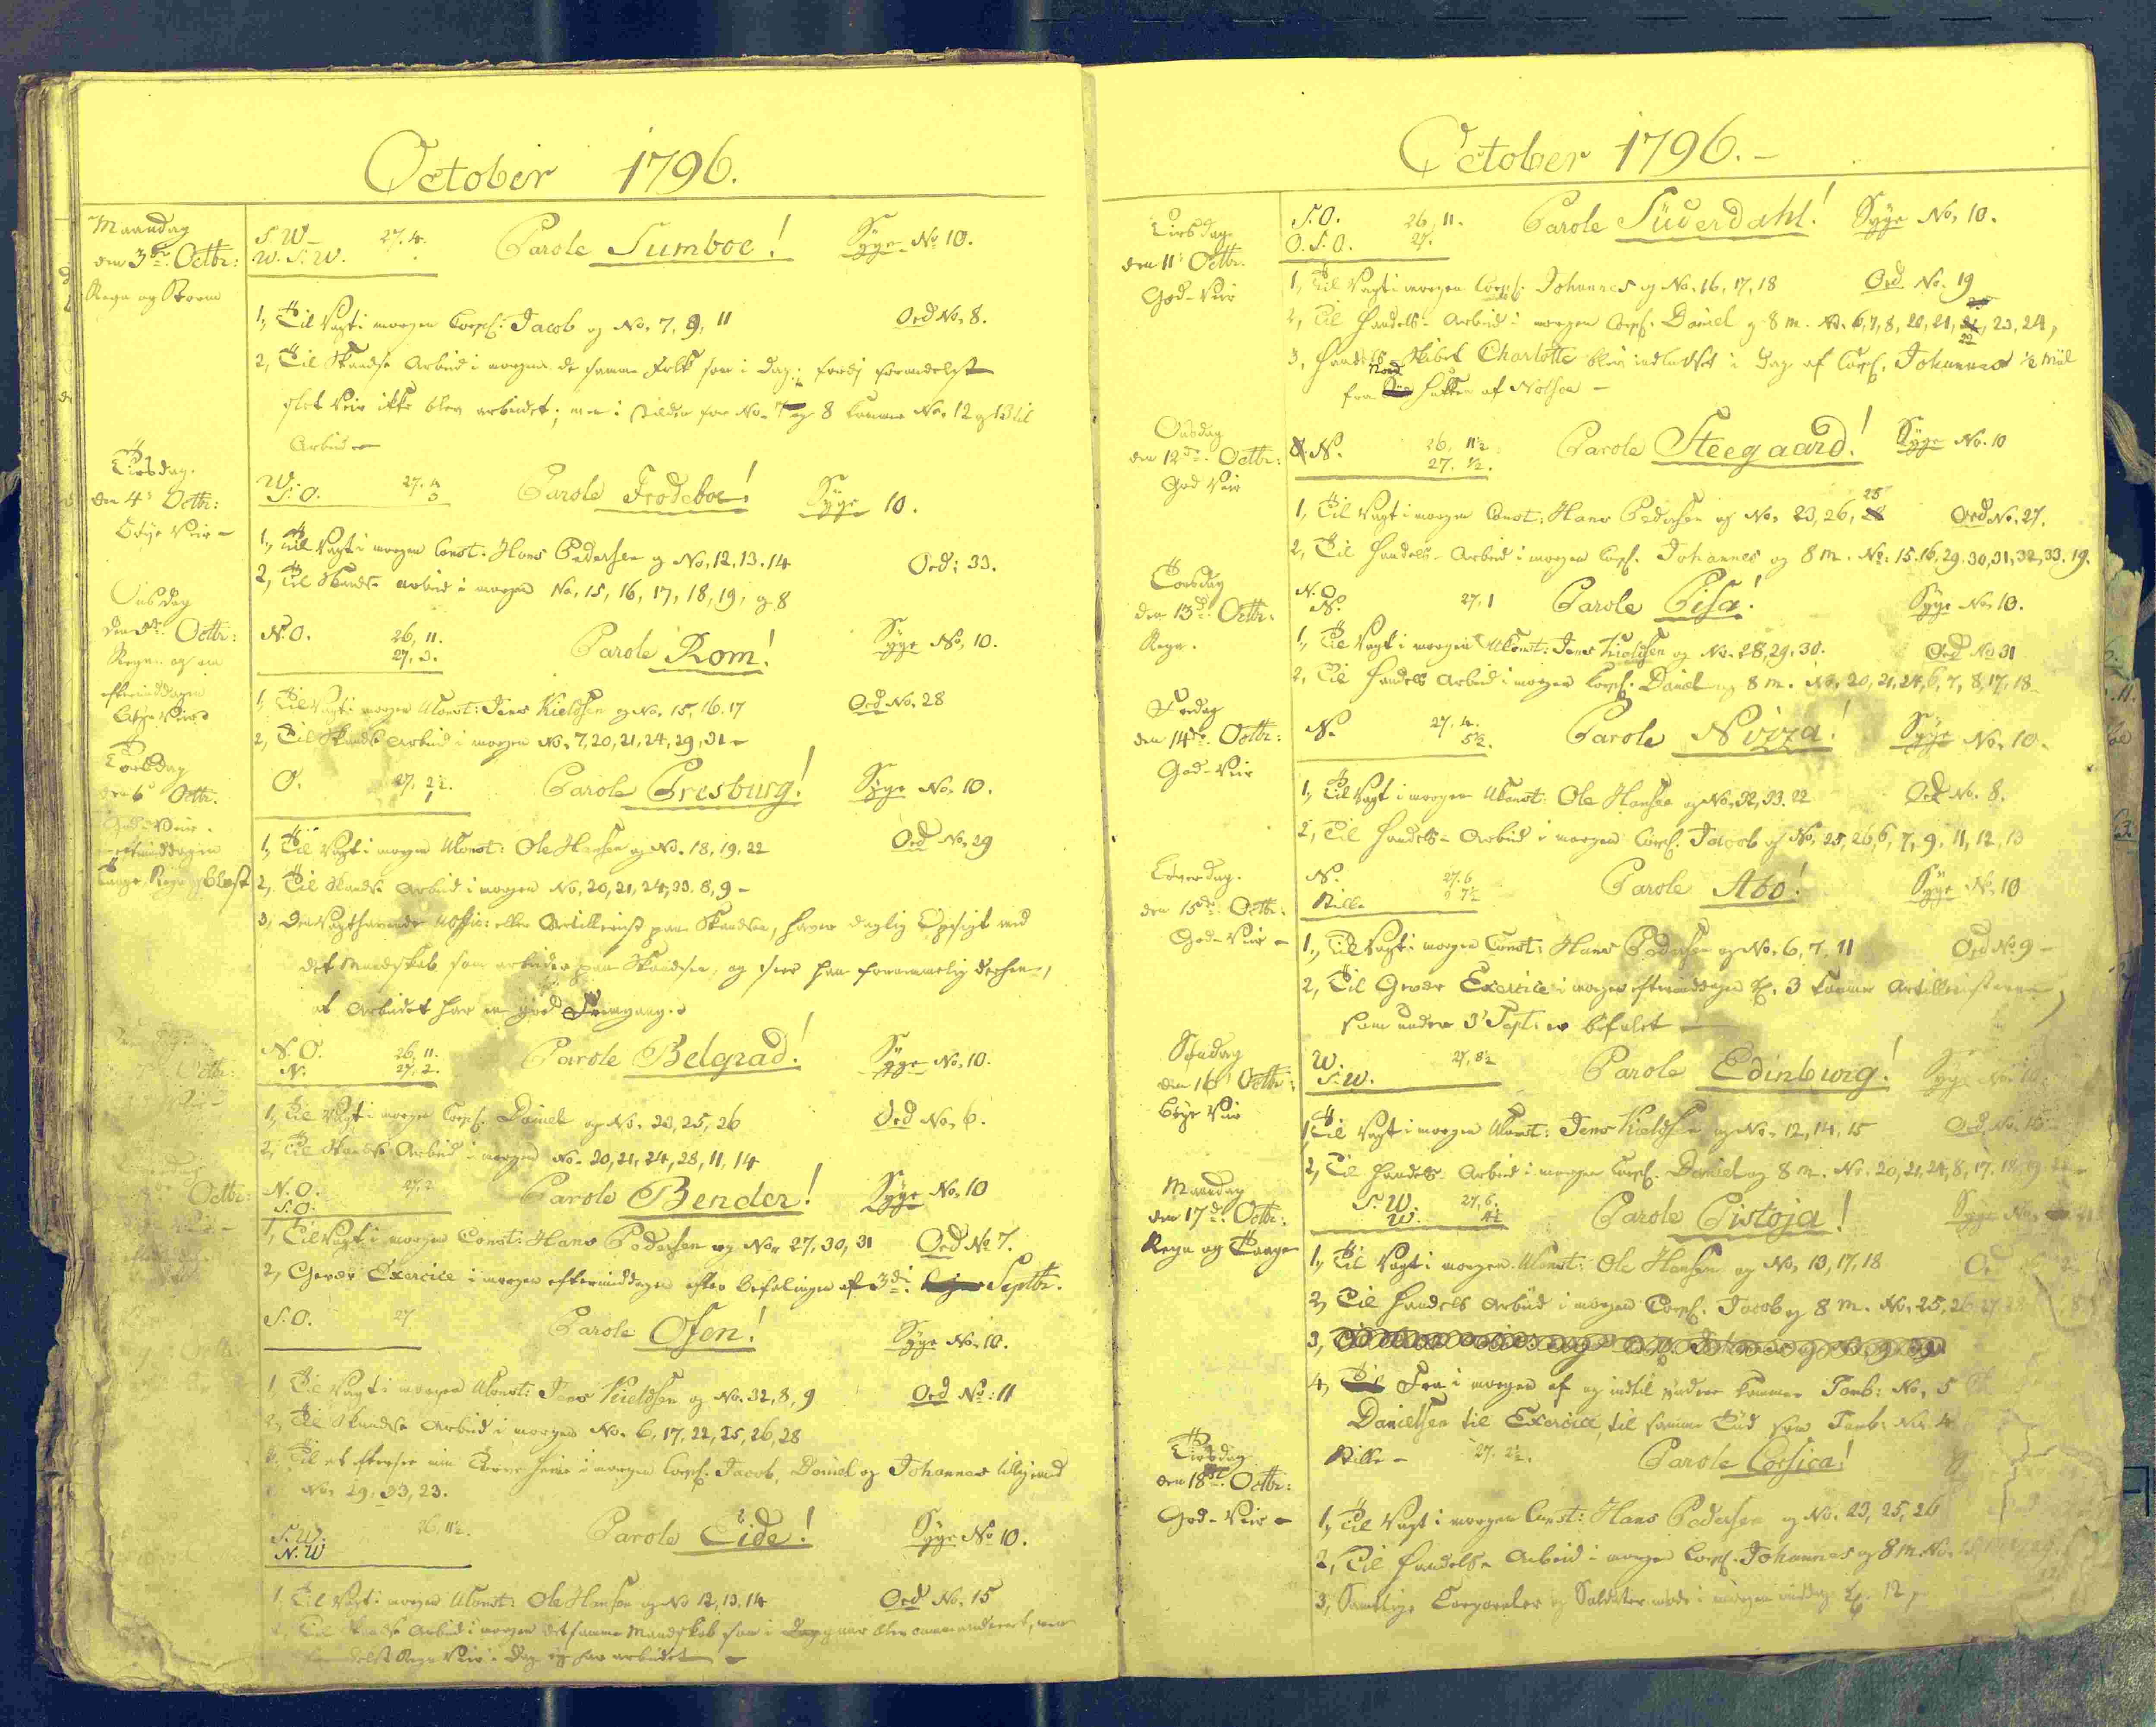 October 1796.
Maandag
den 3die Octbr:
Regn og Storm
S. W. 27. 4. Parole Sumboe! Syge No 10.
W. S. W.
1, Til Vagt i morgen Corpl: Jacob og No. 7, 9, 11 Ord No. 8.
2, Til Skandse Arbeid i morgen de samme Folk som i Dag; fordi formedelst
slet Veir ikke blev arbeidet; men i Stedet for No. 7 og 8 kommer No. 12 og 13 til
Arbeide
Tirsdag.
den 4de Octbr:
Veir –
W. 27. 4 Parole Frodeboe! Syge 10.
S. O. 
1, Til Vagt i morgen Const. Hans Pedersen og No. 12. 13. 14 Ord: 33.
2, Til Skandse arbeid i morgen No. 15, 16, 17, 18, 19, og 8
Onsdag
den 5te Octbr:
Regn og om
eftermiddagen
N. O. 26, 11. Parole Rom! Syge No. 10.
27, 3.
1, Til Vagt i morgen UConst: Jens Kieldsen og No. 15, 16. 17 Ord No. 28
2, Til Skandse Arbeid i morgen No. 7, 20, 21, 24, 29, 31 –
Torsdag
den 6te Octbr.
God Veir.
eftermiddagen
Taage, Regn og blæst
O. 27, 2½. Parole Presburg! Syge No. 10.
1, Til Vagt i morgen UConst: Ole Hansen og No. 18, 19, 22 Ord No. 29
2, Til Skandse Arbeid i morgen No. 20, 21, 24, 33. 8, 9 –
3, Den Vagthavende UOffic: eller Artillerist paa Skandsen, haver daglig Opsigt med
det Mandskab som arbeider paa Skandsen, og seer han fornemmelig derhen,
at Arbeidet har en god Fremgang.
N. O. 26, 11. Parole Belgrad! Syge No. 10.
N. 27, 2.
1, Til Vagt i morgen Corpl. Daniel og No. 23, 25, 26 Ord No. 6.
2, Til Skandse Arbeid i morgen No. 20, 21, 24, 28, 11, 14
Octbr:
N. O. 27, 2 Parole Bender! Syge No. 10
S. O.
1, Til Vagt i morgen Const: Hans Pedersen og No. 27, 30, 31 Ord No 7.
2, Gevær Exercice i morgen eftermiddagen efter befalingen af 3die Septbr.
S. O. 27 Parole Ofen! Syge No. 10.
1, Til Vagt i morgen UConst: Jens Kieldsen og No. 32, 8, 9 Ord No: 11
2, Til Skandse Arbeid i morgen No. 6, 17, 22, 25, 26, 28
3, Til at eftersee min i morgen Corpl. Jacob, Daniel og Johannes tilligemed
No. 29, 33, 23.
S. W. 26, 11½. Parole Eide! Syge No 10.
N. W
1, Til Vagt i morgen UConst: Ole Hansen og No 12, 13, 14 Ord No. 15
2, Til Skandse Arbeid i morgen det samme Mandskab som i gaar blev commanderet, men
formedelst Regn Veir i Dag ej har arbeidet –
October 1796. –
Tirsdag
den 11te Octbr.
God Veir
S. O. 26, 11. Parole Süderdahl! Syge No. 10.
O. S. O. 27.
1, Til Vagt i morgen Corpl. Johannes og No. 16, 17, 18 Ord No. 19
2, Til Handels Arbeid i morgen Corpl. Daniel og 8 m. No. 6, 7, 8, 20, 21, 22, 23, 24,
3, Handels Skibet Charlotte blev indlodset i Dag af Corpl. Johannes ½ Miil
fra Nord af Nolsøe –
Onsdag
den 12te Octbr:
God Veir
N. 26, 11½ Parole Steegaard! Syge No. 10
27. ½.
1, Til Vagt i morgen Const: Hans Pedersen og No. 23, 26, 25 Ord No. 27.
2, Til Handels Arbeid i morgen Corpl. Johannes og 8 m. No: 15. 16, 29. 30, 31, 32, 33. 19.
Torsdag
den 13de Octbr:
Regn.
N. O 27, 1 Parole Pisa! Syge No. 10.
N.
1, Til Vagt i morgen UConst: Jens Kieldsen og No. 28, 29, 30. Ord No 31
2, Til Handels Arbeid i morgen Corpl. Daniel og 8 m. No. 20, 21, 24, 6, 7, 8, 17, 18
Fredag
den 14de Octbr:
God Veir
N. 27, 4. Parole Nizza! Syge No. 10.
5½.
1, Til Vagt i morgen UConst: Ole Hansen og No. 32, 33. 22 Ord No. 8.
2, Til Handels Arbeid i morgen Corpl. Jacob og No. 25, 26, 6, 7, 9, 11, 12, 13
Løverdag.
den 15de Octbr:
God Veir –
N. 27. 6 Parole Abo! Syge No. 10
Stille 7½
1, Til Vagt i morgen Const: Hans Pedersen og No. 6, 7, 11 Ord No. 9 –
2, Til Gevær Exercice i morgen eftermiddagen Kl. 3 kommer Artilleristerne,
som under 3die Sept: er befalet –
Søndag
den 16de Octbr:
Veir
W. 27, 8½ Parole Edinburg! Syge No. 10
S. W.
1, Til Vagt i morgen UConst: Jens Kieldsen og No. 12, 14, 15 Ord No. 16
2, Til Handels Arbeid i morgen Corpl. Daniel og 8 m. No. 20, 21, 24, 8, 17. 18, 19
Maandag
den 17de Octbr:
Regn og Taage
S. W. 27, 6. Parole Pistoja! Syge No.
W. 4½
1, Til Vagt i morgen UConst: Ole Hansen og No. 13, 17, 18 Ord
2, Til Handels Arbeid i morgen Corpl. Jacob og 8 m. No. 25, 26
3,
4, Fra i morgen af og indtil videre kommer Tamb: No. 5
Danielsen til Exercice, til samme Tiid som Tamb: No. 4
Tirsdag
den 18de Octbr:
God Veir –
Stille – 27. 2½. Parole Corsica!
1, Til Vagt i morgen Const: Hans Pedersen og No. 23, 25, 26
2, Til Handels Arbeid i morgen Corpl. Johannes og 8 m. No.
3, Samtlige Corporaler og Soldater møde i morgen middag Kl. 12